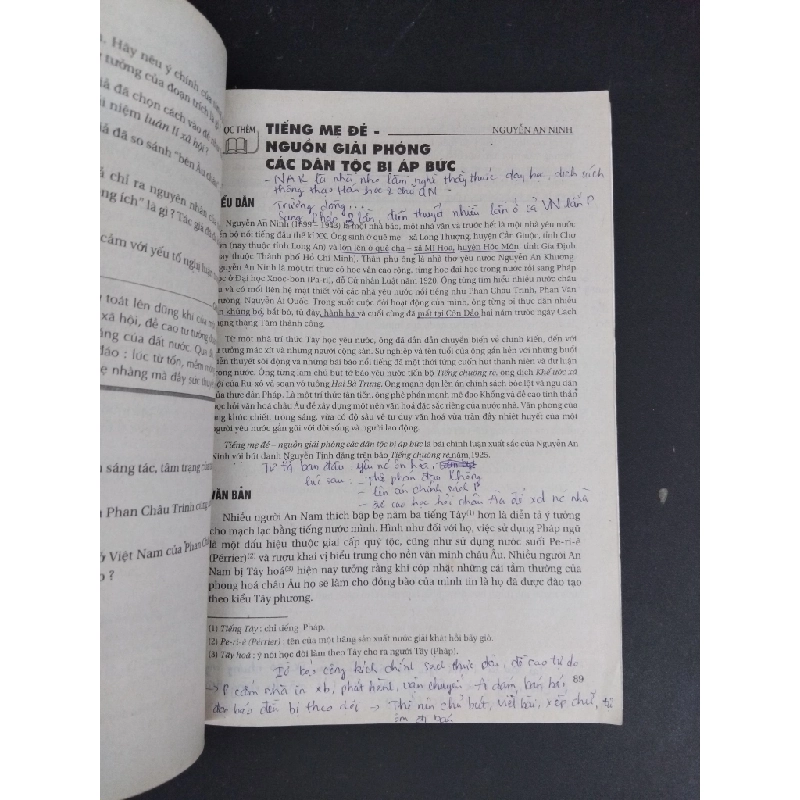 . Hãy nêu ý chính của
tưởng của đoạn trích là gì
đã chọn cách vào đề
niệm luân lí xã hội ?
đã so sánh "bên Âu
chỉ ra nguyên nhân của
ích" là gì ? Tác giả
cảm với yếu tố nghị luận
toát lên dũng khí của
xã hội, đề cao tư tưởng
của đất nước. Qua
đáo : lúc từ tốn, mềm mỏng
nhàng mà đầy sức
sáng tác, tâm trạng
Phan Châu Trinh cũng
Việt Nam của Phan Châu
ỌC THÊM
TIẾNG MẸ ĐẺ -
NGUYỄN AN NINH
NGUỒN GIẢI PHÓNG
CÁC DÂN TỘC BỊ ÁP BỨC
- NAK là nhà nho làm nghề thầy thuốc dạy học, dịch sách
thông thạo Hán học & chữ QN -
ỂU DẪN
Nguyễn An Ninh (1899 - 1943) là một nhà báo, một nhà văn và trước hết là một nhà yêu nước
nổi tiếng đầu thế kỉ XX. Ông sinh ở quê mẹ - xã Long Thượng, huyện Cần Giuộc, tỉnh Chợ
(nay thuộc tỉnh Long An) và lớn lên ở quê cha - xã Mĩ Hoà, huyện Hóc Môn, tỉnh Gia Định
thuộc Thành phố Hồ Chí Minh). Thân phụ ông là nhà thơ yêu nước Nguyễn An Khương.
Nguyễn An Ninh là một trí thức có học vấn cao rộng, từng học đại học trong nước rồi sang Pháp
ở Đại học Xooc-bon (Pa-ri), đỗ Cử nhân Luật năm 1920. Ông từng tìm hiểu nhiều nước châu
và có mối liên hệ mật thiết với các nhà yêu nước nổi tiếng như Phan Châu Trinh, Phan Văn
Trường, Nguyễn Ái Quốc. Trong suốt cuộc đời hoạt động của mình, ông từng bị thực dân nhiều
khủng bố, bắt bớ, tù đày, hành hạ và cuối cùng đã mất tại Côn Đảo hai năm trước ngày Cách
mạng tháng Tám thành công.
Từ một nhà trí thức Tây học yêu nước, ông đã dần dần chuyển biến về chính kiến, đến với
tư tưởng mác xít và những người cộng sản. Sự nghiệp và tên tuổi của ông gắn liền với những buổi
diễn thuyết sôi động và những bài báo nổi tiếng đã một thời từng cuốn hút thanh niên và dư luận
trong nước. Ông từng làm chủ bút tờ báo yêu nước tiến bộ Tiếng chuông rè, ông dịch Khế ước xã
hội của Ru-xô và soạn vở tuồng Hai Bà Trưng. Ông mạnh dạn lên án chính sách bóc lột và ngu dân
của thực dân Pháp. Là một trí thức tân tiến, ông phê phán mạnh mẽ đạo Khổng và đề cao tinh thần
học hỏi văn hoá châu Âu để xây dựng một nền văn hoá đặc sắc riêng của nước nhà. Văn phong của
ông khúc chiết, trong sáng, vừa có độ sâu về tư duy văn hoá vừa tràn đầy nhiệt huyết của một
người yêu nước gần gũi với đời sống và người lao động.
Tiếng mẹ đẻ - nguồn giải phóng các dân tộc bị áp bức là bài chính luận xuất sắc của Nguyễn An
Ninh với bút danh Nguyễn Tịnh đăng trên báo Tiếng chuông rè năm 1925.
lúc sau : - phê phán đạo Khổng
- lên án chính sách P
VĂN BẢN
Nhiều người An Nam thích bập bẹ năm ba tiếng Tây(1) hơn là diễn tả ý tưởng
cho mạch lạc bằng tiếng nước mình. Hình như đối với họ, việc sử dụng Pháp ngữ
là một dấu hiệu thuộc giai cấp quý tộc, cũng như sử dụng nước suối Pe-ri-ê
(Perrier)(2) và rượu khai vị biểu trưng cho nền văn minh châu Âu. Nhiều người An
Nam bị Tây hoá(3) hiện nay tưởng rằng khi cóp nhặt những cái tầm thường của
phong hoá châu Âu họ sẽ làm cho đồng bào của mình tin là họ đã được đào tạo
theo kiểu Tây phương.
(1) Tiếng Tây : chỉ tiếng Pháp.
(2) Pe-ri-ê (Perrier) : tên của một hãng sản xuất nước giải khát hồi bấy giờ.
(3) Tây hoá : ý nói học đòi làm theo Tây cho ra người Tây (Pháp).
Tờ báo công kích chính sách thực dân, đề cao tự do
89
→ P cấm nhà in xb, phát hành, vận chuyển